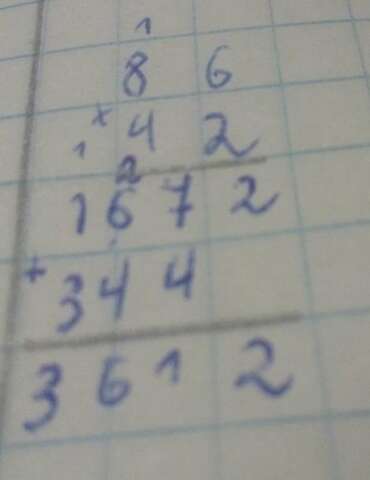 1
8 6
× 4 2
1 2
1 6 7 2
+ 3 4 4
3 6 1 2